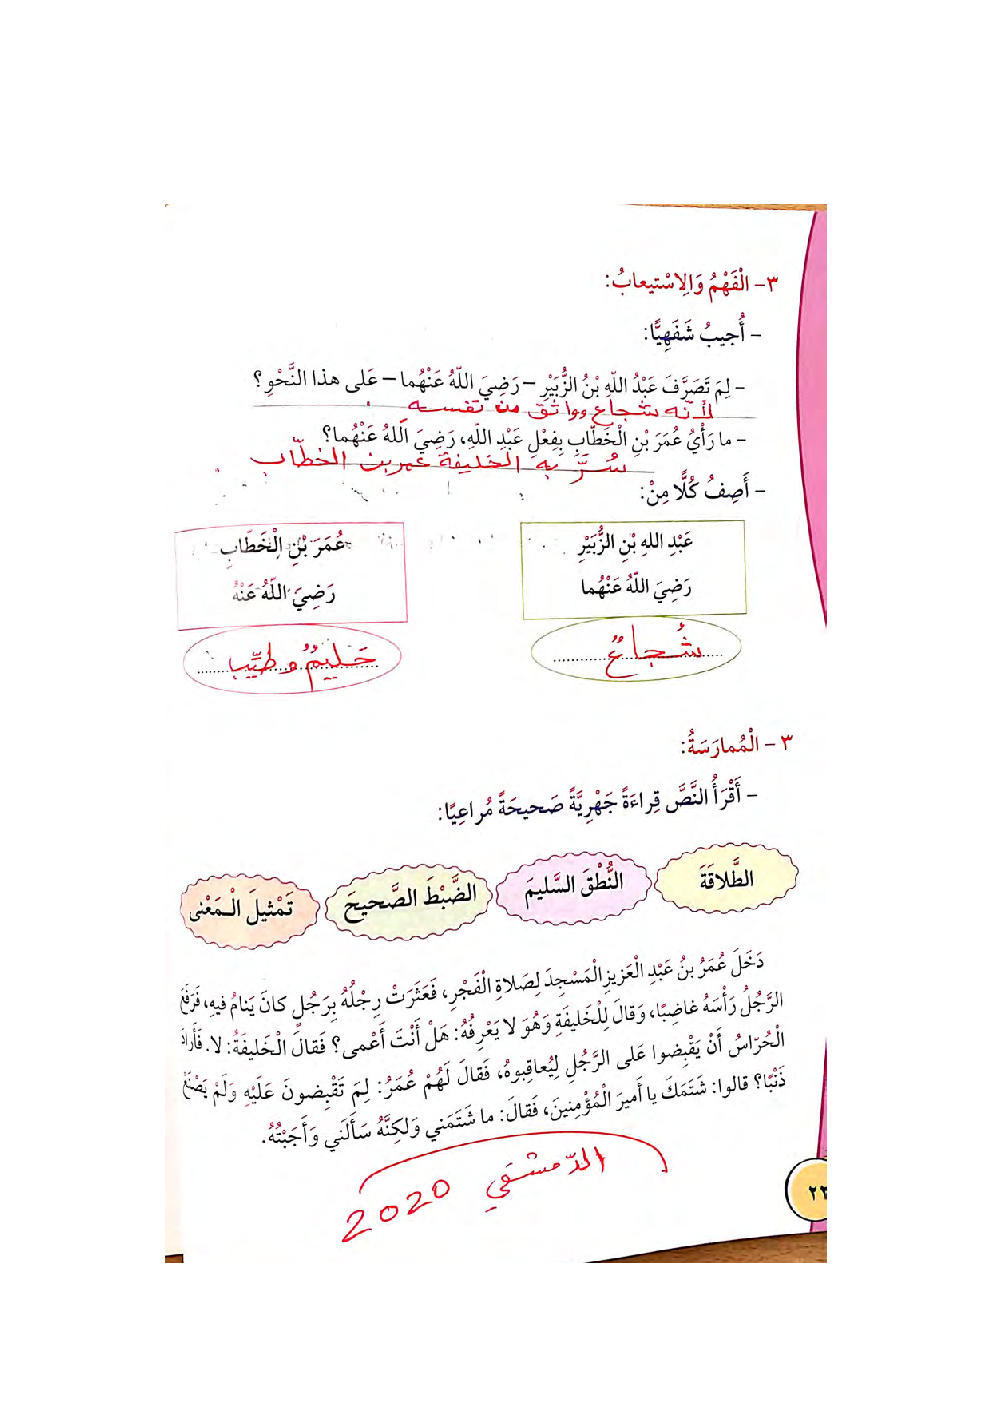 ٣- الْفَهْمُ وَالِاسْتيعابُ:
- أُجيبُ شَفَهِيًّا:
- لِمَ تَصَرَّفَ عَبْدُ اللّهِ بْنُ الزُّبَيْرِ – رَضِيَ اللّهُ عَنْهُما – عَلى هذا النَّحْوِ؟
لأنه شجاع وواثق من نفسه .
- ما رَأْيُ عُمَرَ بْنِ الْخَطّابِ بِفِعْلِ عَبْدِ اللّهِ، رَضِيَ اللّهُ عَنْهُما؟
سُرَّ به الخليفة عمر بن الخطّاب .
- أَصِفُ كُلًّا مِنْ:
عَبْدِ اللهِ بْنِ الزُّبَيْرِ
رَضِيَ اللّهُ عَنْهُما
شُجاعٌ
عُمَرَ بْنِ الْخَطّابِ
رَضِيَ اللّهُ عَنْهُ
حَليمٌ و طيّب
٣ - الْمُمارَسَةُ:
- أَقْرَأُ النَّصَّ قِراءَةً جَهْرِيَّةً صَحيحَةً مُراعِيًا:
الطَّلاقَةَ
النُّطْقَ السَّليمَ
الضَّبْطَ الصَّحيحَ
تَمْثيلَ الْمَعْنى
دَخَلَ عُمَرُ بنُ عَبْدِ الْعَزيزِ الْمَسْجِدَ لِصَلاةِ الْفَجْرِ، فَعَثَرَتْ رِجْلُهُ بِرَجُلٍ كانَ يَنامُ فيهِ، فَرَفَعَ
الرَّجُلُ رَأْسَهُ غاضِبًا، وَقالَ لِلْخَليفَةِ وَهُوَ لا يَعْرِفُهُ: هَلْ أَنْتَ أَعْمى؟ فَقالَ الْخَليفَةُ: لا. فَأَرادَ
الْحُرّاسُ أَنْ يَقْبِضوا عَلى الرَّجُلِ لِيُعاقِبوهُ، فَقالَ لَهُمْ عُمَرُ: لِمَ تَقْبِضونَ عَلَيْهِ وَلَمْ يَصْنَعْ
ذَنْبًا؟ قالوا: شَتَمَكَ يا أَميرَ الْمُؤْمِنينَ، فَقالَ: ما شَتَمَني وَلكِنَّهُ سَأَلَني وَأَجَبْتُهُ.
الدّمشقي 2020
٢٢